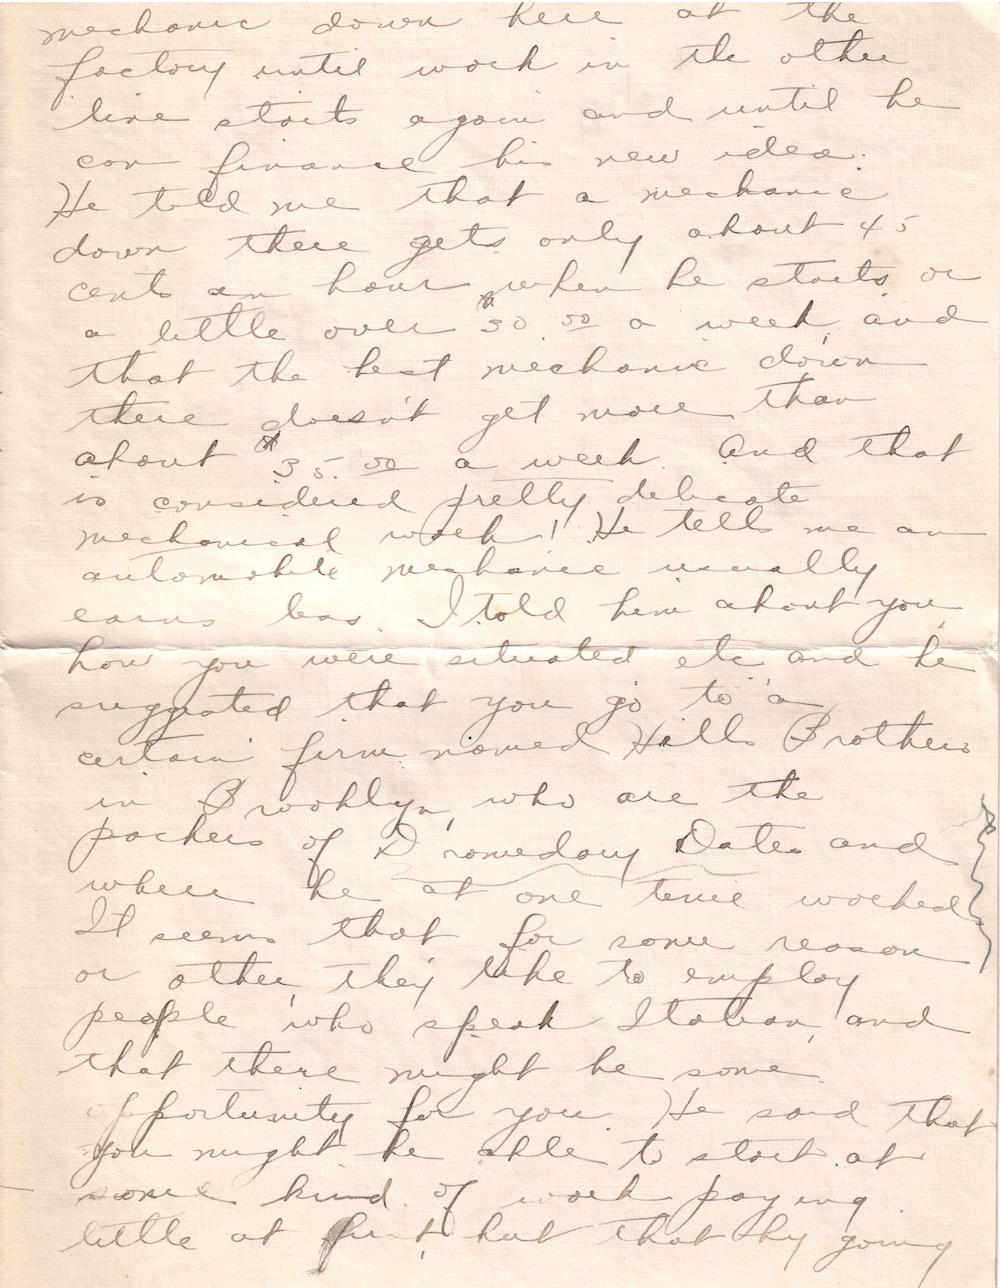 mechanic down here at the
factory until work in the other
line starts again and until he
can finance his new idea.
He told me that a mechanic
down there gets only about 45
cents an hour when he starts or
a little over $30.00 a week, and
that the best mechanic down
there doesn't get more than
about $35.00 a week. And that
is considered pretty delicate
mechanical work! He tells me an
automobile mechanic usually
earns less. I told him about you
how you were situated etc and he
suggested that you go to a
certain firm named Hills Brothers
in Brooklyn, who are the
packers of Dromedary Dates and
where he at one time worked.
It seems that for some reason
or other, they like to employ
people who speak Italian, and
that there might be some
opportunity for you. He said that
you might be able to start at
some kind of work paying
little at first, but that by going